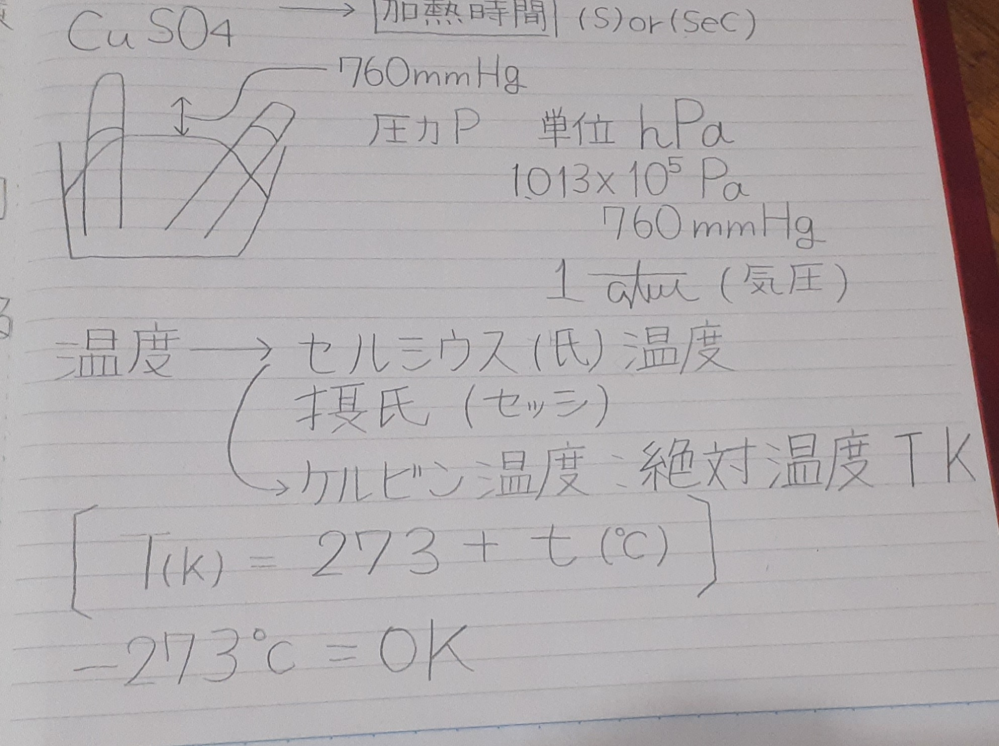 CuSO4 → 加熱時間 (S)or(Sec)
760mmHg
圧力P 単位 hPa
1.013×10⁵ Pa
760mmHg
1 atm (気圧)
温度 → セルシウス(氏)温度
摂氏 (セッシ)
→ ケルビン温度:絶対温度 T K
T(K) = 273 + t (℃)
-273℃ = 0K